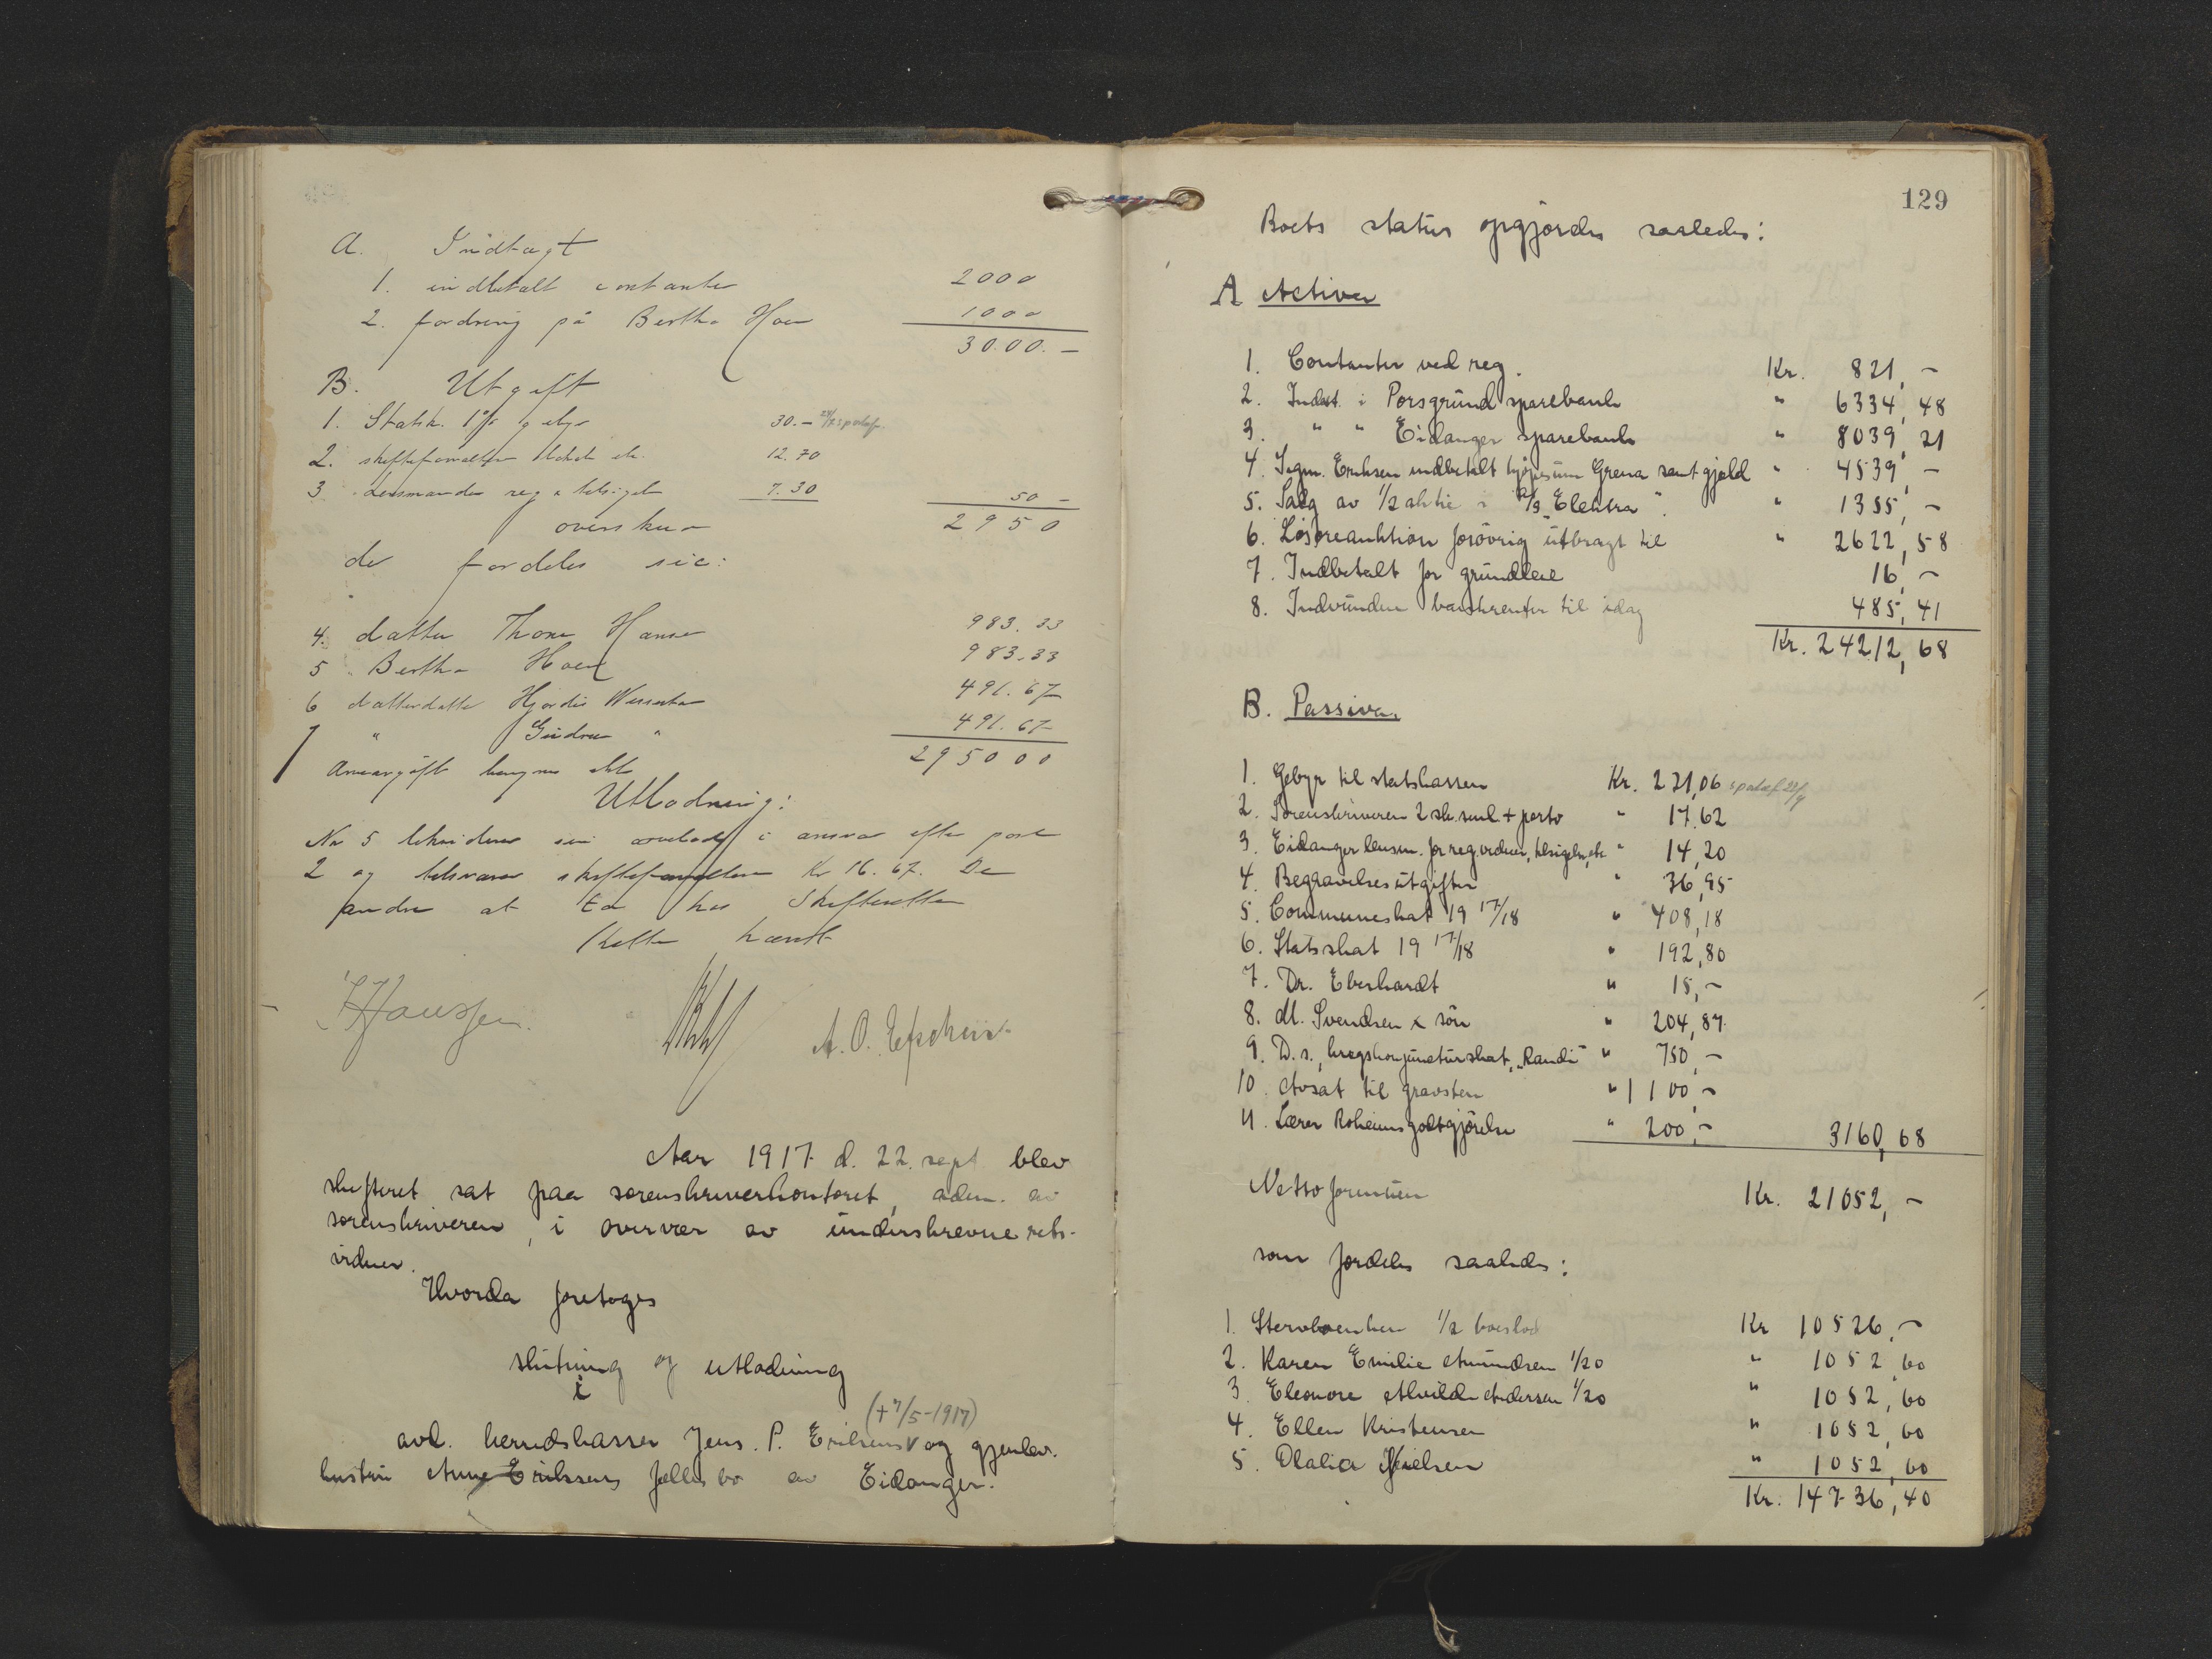 A. Indtægt
1. indbetalt contanter 2000
2. fordring på Bertha Hoen 1000
3000.-
B. Utgift
1. Statsk. 1% gebyr 30.-
2. skifteforvalteren 12.70
3. Lensmanden reg & tilsigel 7.30 50 -
overskud 2950
der fordeles sic:
4. datter Thora Hansen 983.33
5 Bertha Hoen 983.33
6 datterdatter Hjørdis 491.67
7 " Gudrun " 491.67
Arveavgift 2950 00
Utlodning:
No 5 sin arvelod i ansvar efter post
2 og tilsvarer skifteforvalteren Kr 16.67. De
andre at ta hos Skifteretten
Retten hævet
Hanssen. A. O.
Aar 1917 d. 22. sept. blev
skifteret sat paa sorenskriverkontoret, adm. av
sorenskriveren, i overvær av underskrevne rets-
vidner.
Hvorda foretoges
slutning og utlodning
i
(+ 7/5-1917)
avd. herredskasser Jens. P. Eriksens og gjenlev.
hustru Anne Erikssens fellesbo av Eidanger.
129
Boets status opgjordes saaledes:
A Activa
1. Contanter ved reg. Kr. 821,-
2. Indest. i Porsgrund sparebank " 6334,48
3. " " Eidanger sparebank " 8039,21
4. Ingm. Eriksen indbetalt kjøpesum Grena samt gjæld " 4539,-
5. Salg av 1/2 aktie i A/S "Elektra". " 1355,-
6. Løsøreauktion forøvrig utbragt til " 2622,58
7. Indbetalt for grundleie 16,-
8. Indvundne bankrenter til idag 485,41
Kr. 24212,68
B. Passiva.
1. Gebyr til statskassen Kr. 221,06
2. Sorenskriveren 2 sk. saml. + porto " 17.62
3. Eidanger lensm. for reg. vidner, tilsigelse, etc " 14,20
4. Begravelsesutgifter " 36,95
5. Communeskat 19 17/18 " 408,18
6. Statsskat 19 17/18 " 192,80
7. Dr. Eberhardt " 15,-
8. M. Svendsen & søn " 204,87
9. D. s., krigskonjuncturskat, "Randi" " 750,-
10. Avsat til gravsten " 1100,-
11. Lærer Roheims godtgjørelse " 200,- 3160,68
Netto formuen Kr. 21052,-
som fordeles saaledes:
1. Stervboenken 1/2 boeslod Kr 10526,-
2. Karen Emilie Amundsen 1/20 " 1052,60
3. Eleonore Alvilde Andersen 1/20 " 1052,60
4. Ellen Kristensen " 1052,60
5. Olalia Nielsen " 1052,60
Kr. 14736,40